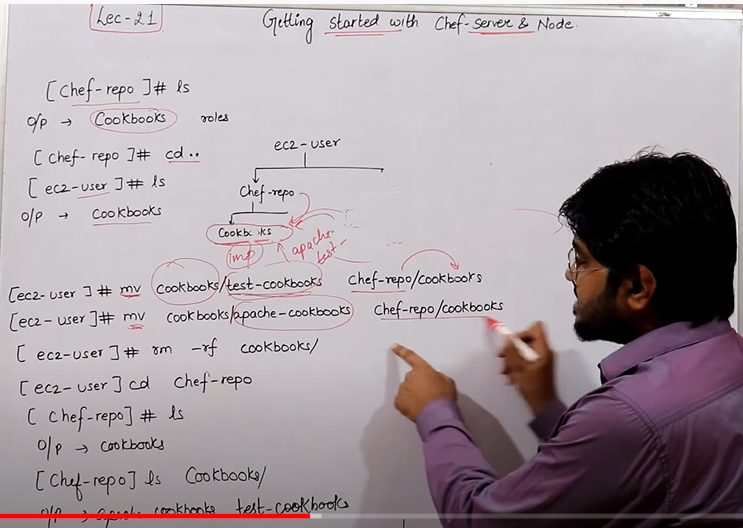 Lec-21
Getting started with Chef-server & Node.
[Chef-repo]# ls
O/P → Cookbooks roles
[Chef-repo]# cd..
[ec2-user]# ls
O/P → Cookbooks
ec2-user
Chef-repo
Cookbooks
imp
apache-
test-
[ec2-user]# mv cookbooks/test-cookbooks Chef-repo/cookbooks
[ec2-user]# mv cookbooks/apache-cookbooks Chef-repo/cookbooks
[ec2-user]# rm -rf cookbooks/
[ec2-user] cd Chef-repo
[Chef-repo]# ls
O/P → cookbooks
[Chef-repo] ls Cookbooks/
O/P → apache cookbooks test-cookbooks